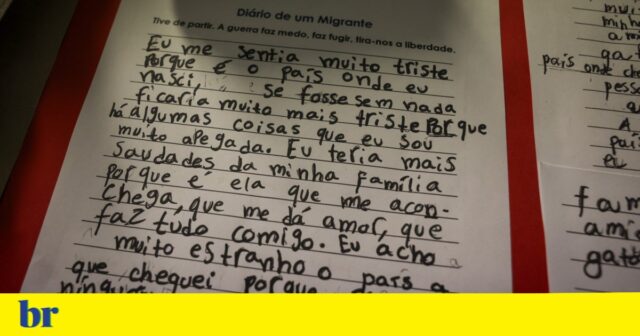 Diário de um Migrante
Tive de partir. A guerra faz medo, faz fugir, tira-nos a liberdade.
Eu me sentia muito triste
Porque é o país onde eu
nasci, se fosse sem nada
ficaria muito mais triste Porque
há algumas coisas que eu sou
muito apegada. Eu teria mais
Saudades da minha família
porque é ela que me acon-
chega, que me dá amor, que
faz tudo comigo. Eu acho
muito estranho o país a
que cheguei porque
minha
ami
ga
país onde
pesso
A
paí
eu
fam
ami
gato
br